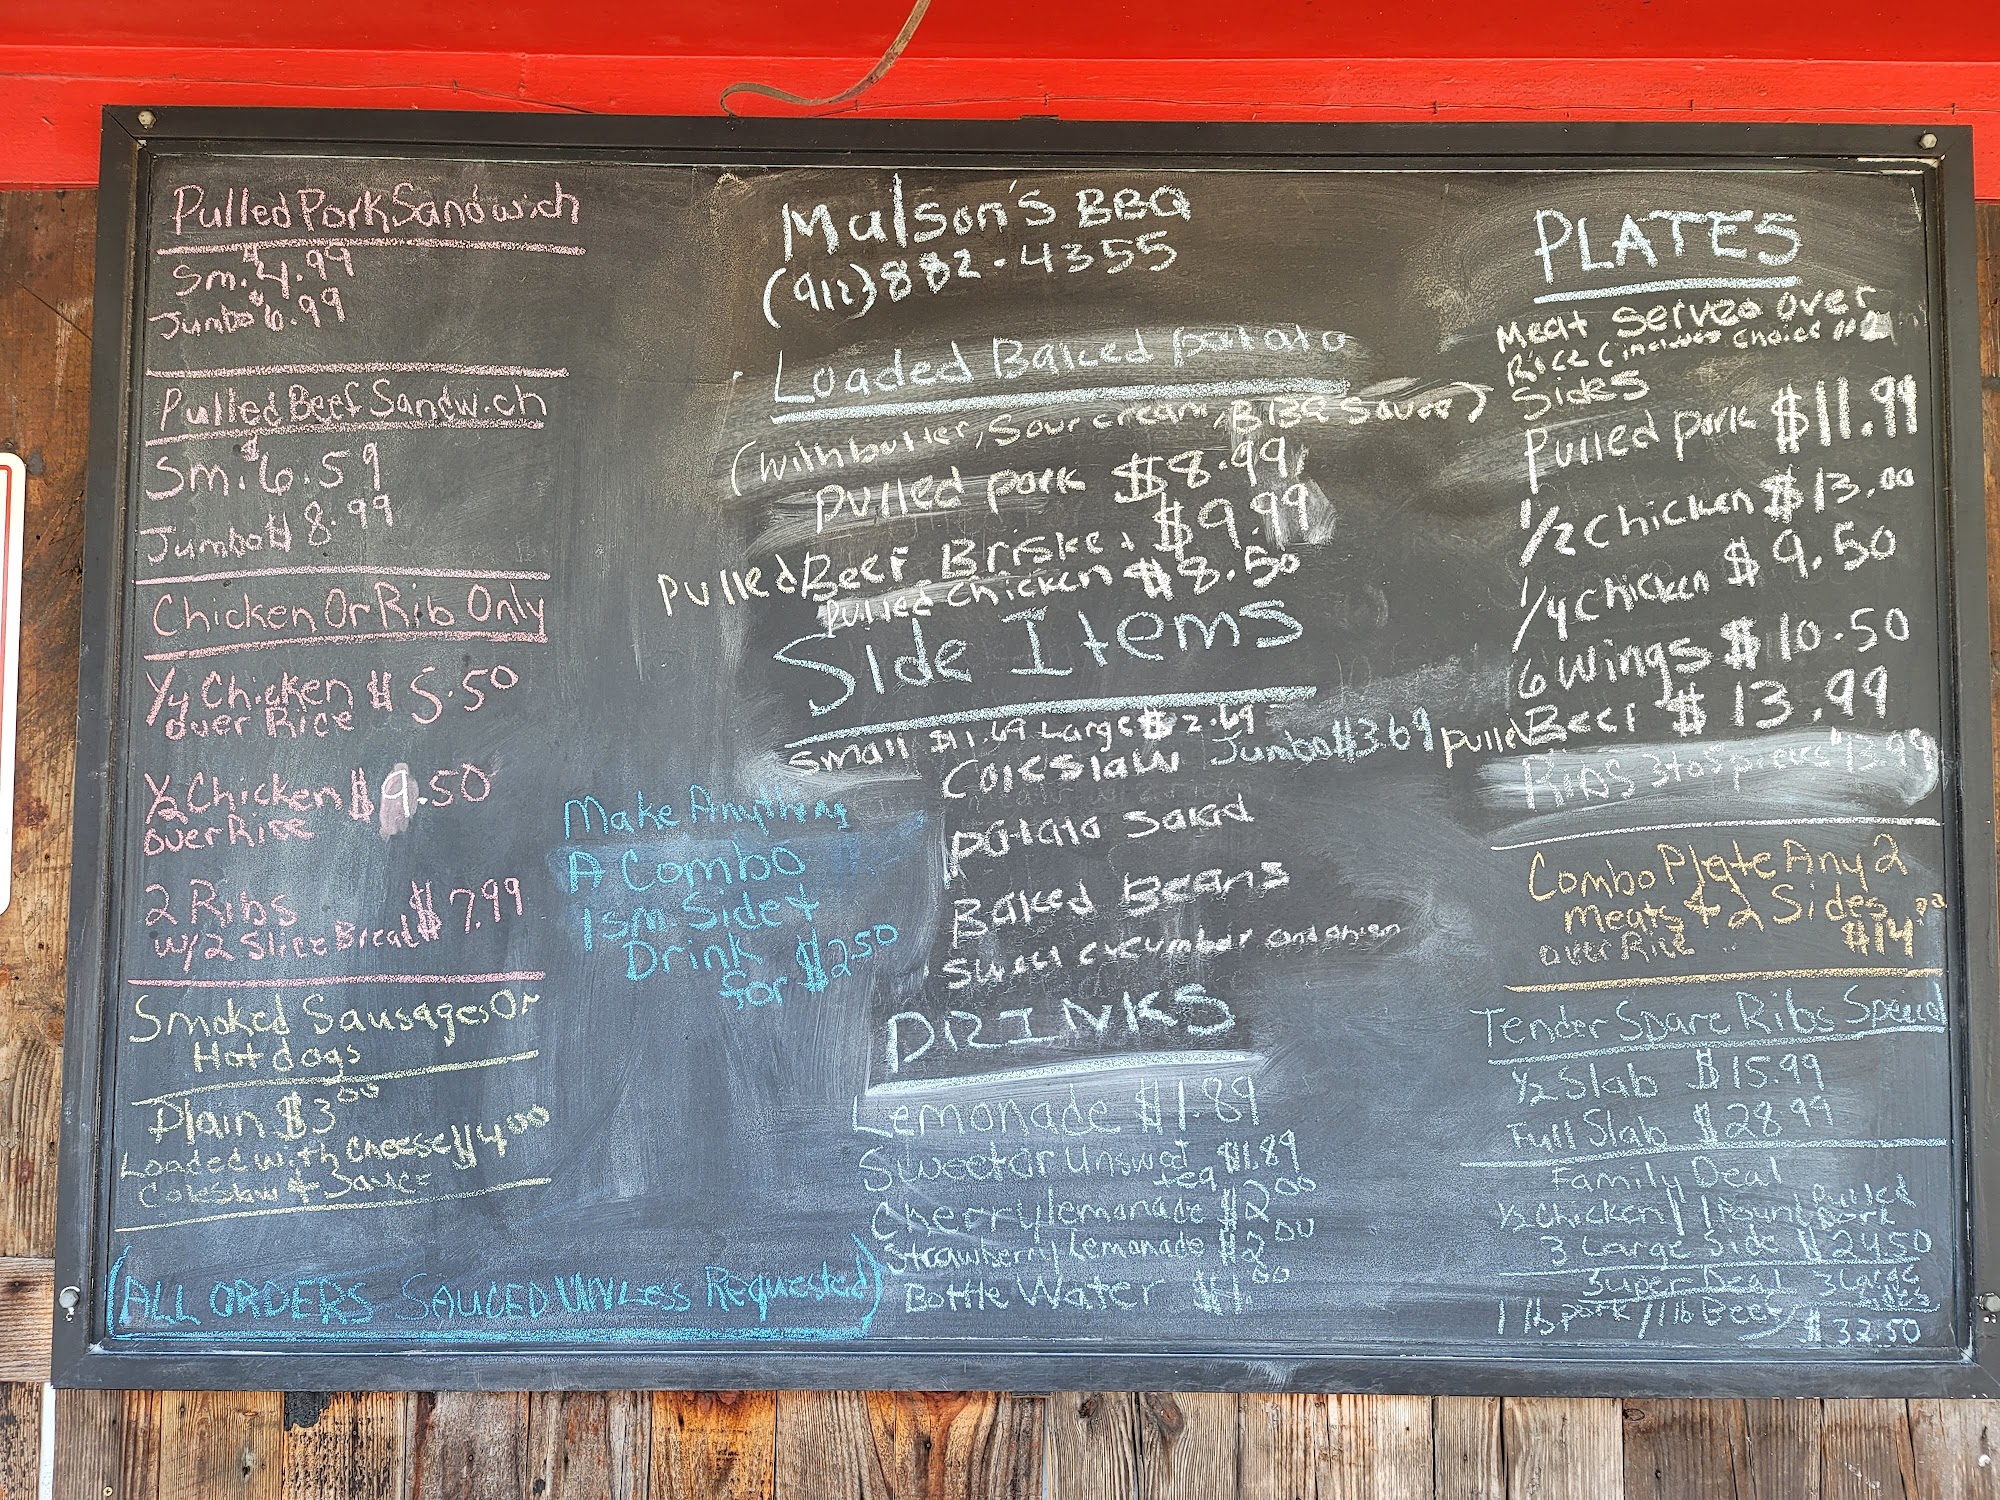 Pulled Pork Sandwich
Sm. $4.99
Jumbo $6.99
Pulled Beef Sandwich
Sm. $6.59
Jumbo $8.99
Chicken Or Rib Only
1/4 Chicken $5.50
over Rice
1/2 Chicken $9.50
over Rice
2 Ribs
w/2 Slice Bread $7.99
Smoked Sausages Or
Hot dogs
Plain $3.00
Loaded with cheese $4.00
Coleslaw + Sauce
(ALL ORDERS SAUCED UNLess Requested)
Make Anything
A Combo
1 sm. Side +
Drink
for $2.50
Malson's BBQ
(912) 882-4355
Loaded Baked potato
(with butter, Sour cream, BBQ Sauce)
Pulled pork $8.99
Pulled Beef Brisket $9.99
Pulled Chicken $8.50
Side Items
Small $1.69 Large $2.69 Jumbo $3.69
Coleslaw
Potato Salad
Baked Beans
Sweet cucumber and onion
DRINKS
Lemonade $1.89
Sweet or Unsweet tea $1.89
Cherry lemonade $2.00
Strawberry Lemonade $2.00
Bottle Water $1.00
PLATES
Meat served over
Rice (includes choice of 2
Sides
Pulled pork $11.99
1/2 Chicken $13.00
1/4 Chicken $9.50
6 Wings $10.50
Pulled Beef $13.99
Ribs 3 to 5 pieces $13.99
Combo Plate Any 2
Meats + 2 Sides
over Rice $14
Tender Spare Ribs Special
1/2 Slab $15.99
Full Slab $28.99
Family Deal
1/2 Chicken / 1 Pound Pulled Pork
3 Large Side $24.50
Super Deal 3 Large Sides
1 lb pork / 1 lb Beef / $32.50